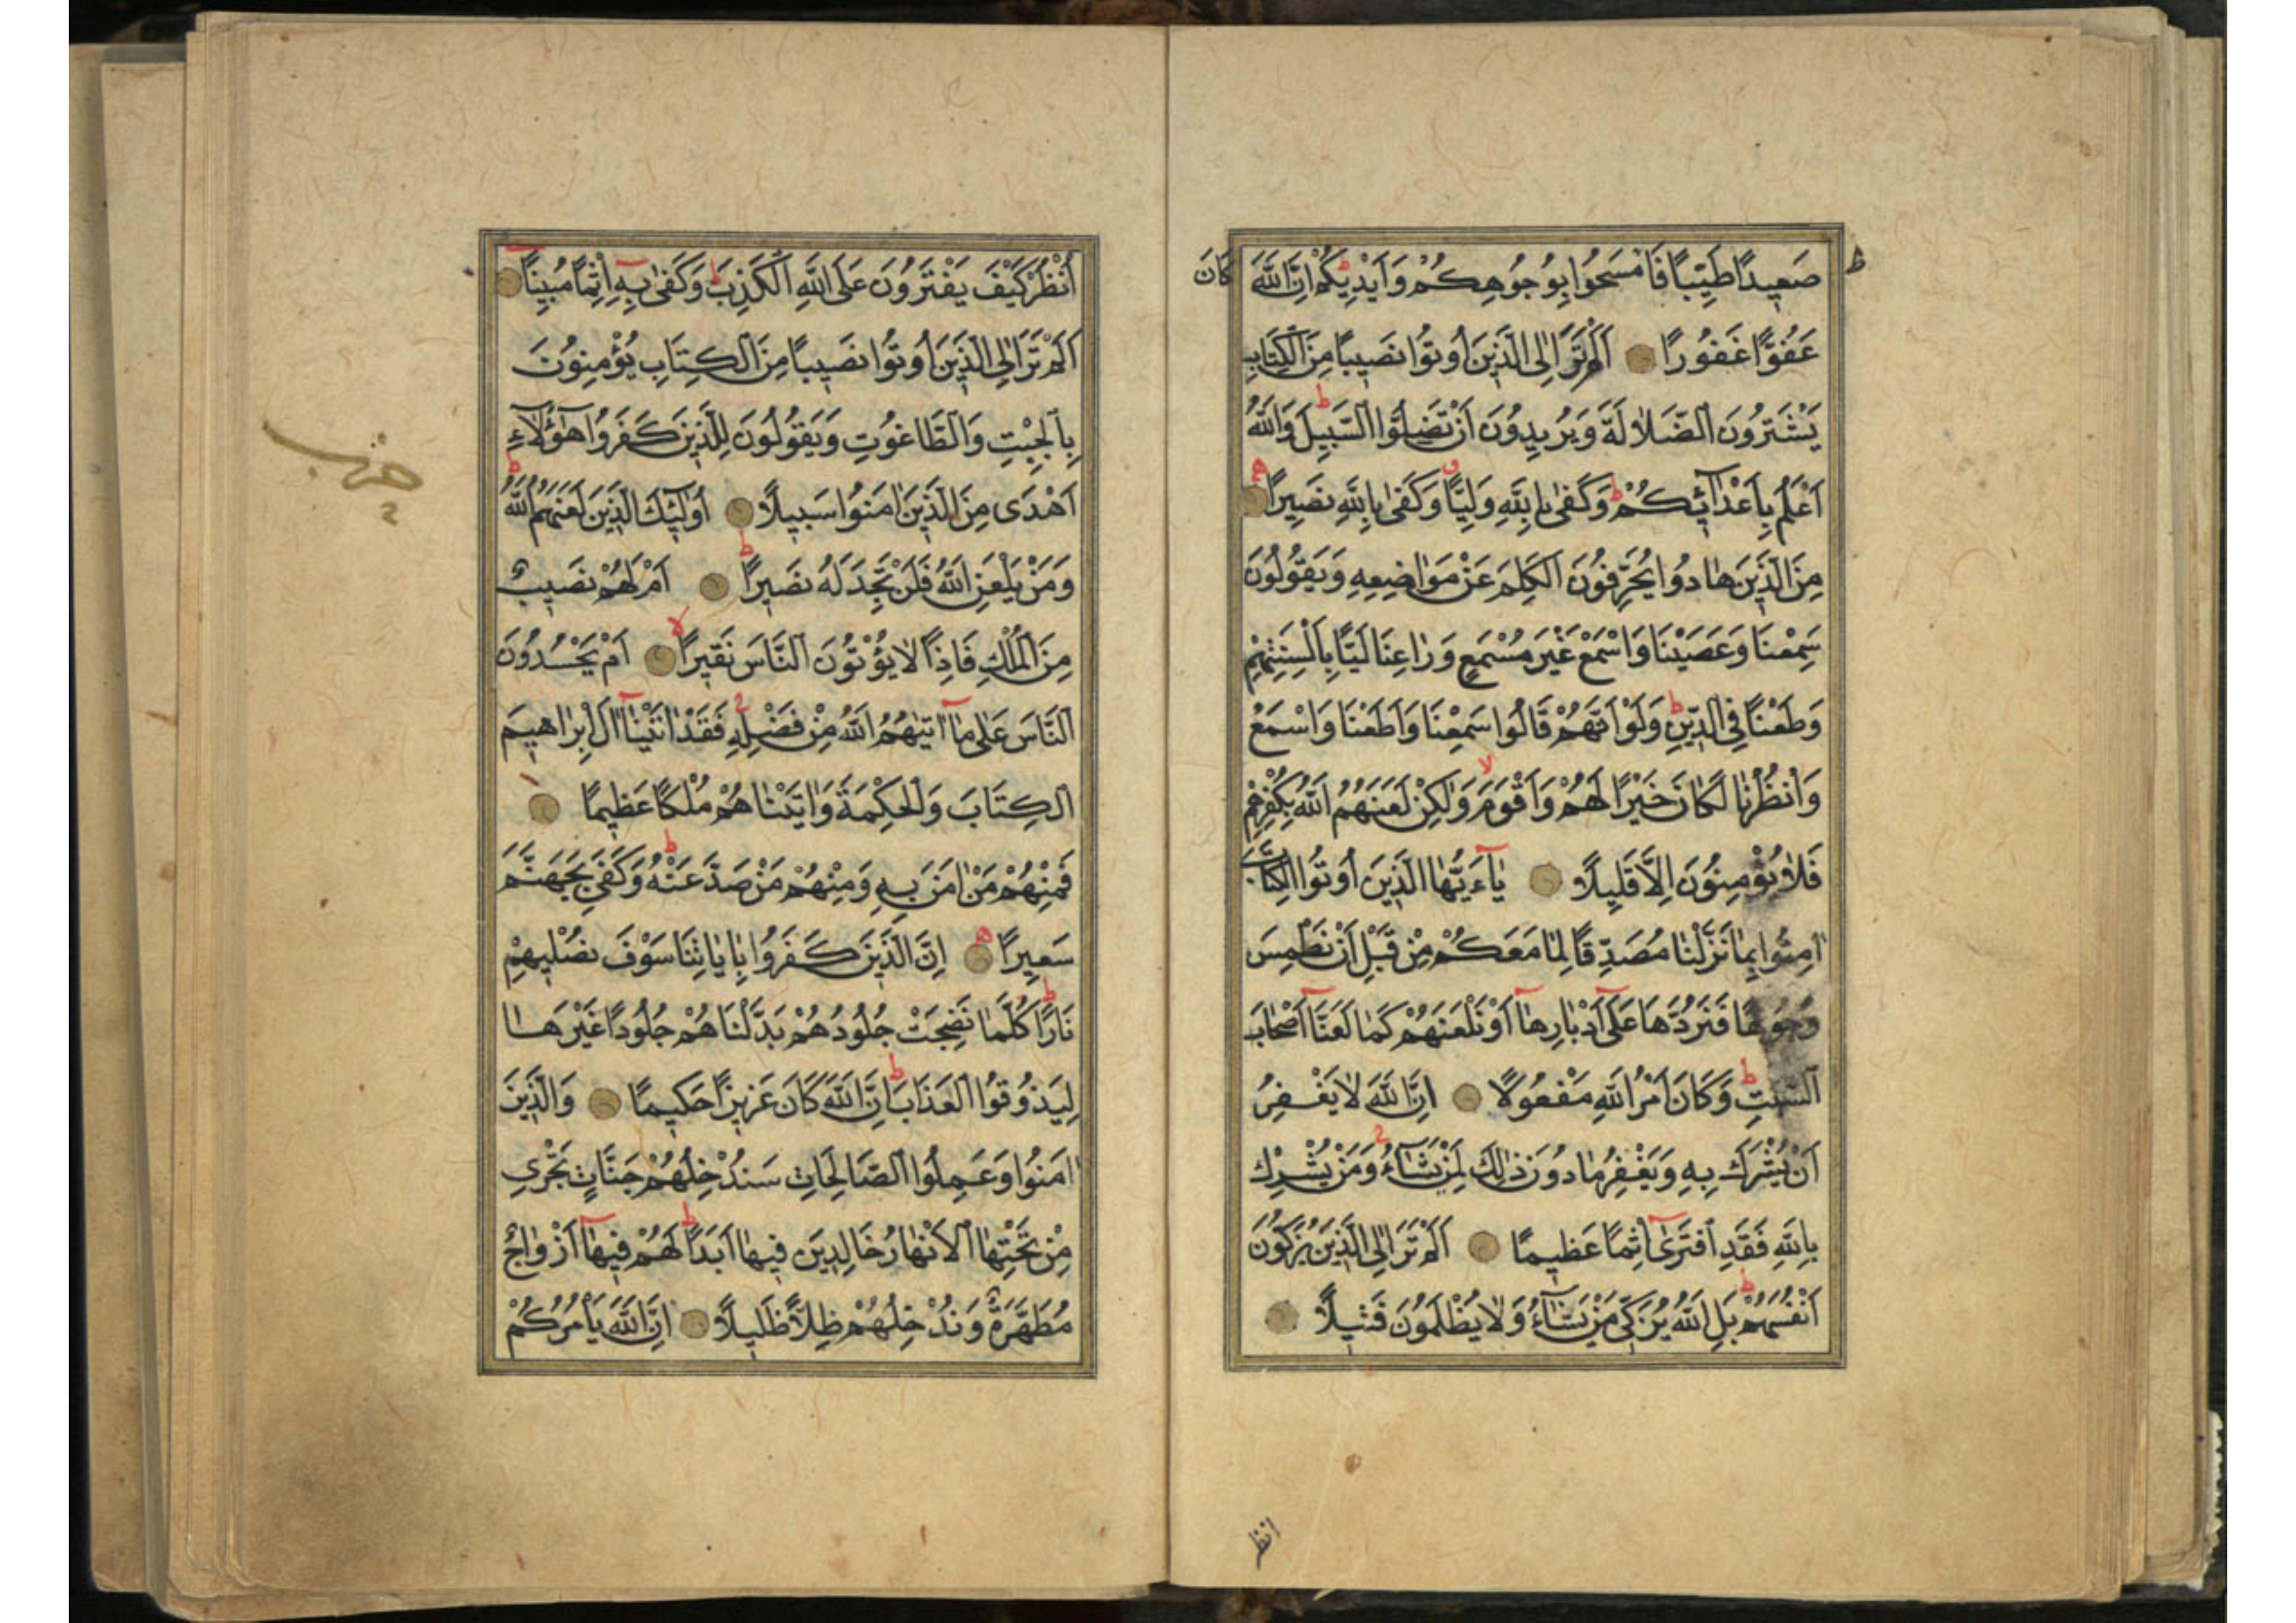 صَعِيدًا طَيِّبًا فَامْسَحُوا بِوُجُوهِكُمْ وَاَيْدِيكُمْ اِنَّ اللّٰهَ كَانَ
عَفُوًّا غَفُورًا اَلَمْ تَرَ اِلَى الَّذِينَ اُوتُوا نَصِيبًا مِنَ الْكِتَابِ
يَشْتَرُونَ الضَّلَالَةَ وَيُرِيدُونَ اَنْ تَضِلُّوا السَّبِيلَ وَاللّٰهُ
اَعْلَمُ بِاَعْدَآئِكُمْ وَكَفٰى بِاللّٰهِ وَلِيًّا وَكَفٰى بِاللّٰهِ نَصِيرًا
مِنَ الَّذِينَ هَادُوا يُحَرِّفُونَ الْكَلِمَ عَنْ مَوَاضِعِهِ وَيَقُولُونَ
سَمِعْنَا وَعَصَيْنَا وَاسْمَعْ غَيْرَ مُسْمَعٍ وَرَاعِنَا لَيًّا بِاَلْسِنَتِهِمْ
وَطَعْنًا فِي الدِّينِ وَلَوْ اَنَّهُمْ قَالُوا سَمِعْنَا وَاَطَعْنَا وَاسْمَعْ
وَانْظُرْنَا لَكَانَ خَيْرًا لَهُمْ وَاَقْوَمَ وَلٰكِنْ لَعَنَهُمُ اللّٰهُ بِكُفْرِهِمْ
فَلَا يُؤْمِنُونَ اِلَّا قَلِيلًا يَآءَيُّهَا الَّذِينَ اُوتُوا الْكِتَابَ
اٰمِنُوا بِمَا نَزَّلْنَا مُصَدِّقًا لِمَا مَعَكُمْ مِنْ قَبْلِ اَنْ نَطْمِسَ
وُجُوهًا فَنَرُدَّهَا عَلٰٓى اَدْبَارِهَآ اَوْ نَلْعَنَهُمْ كَمَا لَعَنَّآ اَصْحَابَ
السَّبْتِ وَكَانَ اَمْرُ اللّٰهِ مَفْعُولًا اِنَّ اللّٰهَ لَا يَغْفِرُ
اَنْ يُشْرَكَ بِهِ وَيَغْفِرُ مَا دُونَ ذٰلِكَ لِمَنْ يَشَآءُ وَمَنْ يُشْرِكْ
بِاللّٰهِ فَقَدِ افْتَرٰٓى اِثْمًا عَظِيمًا اَلَمْ تَرَ اِلَى الَّذِينَ يُزَكُّونَ
اَنْفُسَهُمْ بَلِ اللّٰهُ يُزَكِّي مَنْ يَشَآءُ وَلَا يُظْلَمُونَ فَتِيلًا
انظر
اُنْظُرْ كَيْفَ يَفْتَرُونَ عَلَى اللّٰهِ الْكَذِبَ وَكَفٰى بِهِٓ اِثْمًا مُبِينًا
اَلَمْ تَرَ اِلَى الَّذِينَ اُوتُوا نَصِيبًا مِنَ الْكِتَابِ يُؤْمِنُونَ
بِالْجِبْتِ وَالطَّاغُوتِ وَيَقُولُونَ لِلَّذِينَ كَفَرُوا هٰٓؤُلَآءِ
اَهْدَى مِنَ الَّذِينَ اٰمَنُوا سَبِيلًا اُولٰٓئِكَ الَّذِينَ لَعَنَهُمُ اللّٰهُ
وَمَنْ يَلْعَنِ اللّٰهُ فَلَنْ تَجِدَ لَهُ نَصِيرًا اَمْ لَهُمْ نَصِيبٌ
مِنَ الْمُلْكِ فَاِذًا لَا يُؤْتُونَ النَّاسَ نَقِيرًا اَمْ يَحْسُدُونَ
النَّاسَ عَلٰى مَآ اٰتٰيهُمُ اللّٰهُ مِنْ فَضْلِهِ فَقَدْ اٰتَيْنَآ اٰلَ اِبْرَاهِيمَ
الْكِتَابَ وَالْحِكْمَةَ وَاٰتَيْنَاهُمْ مُلْكًا عَظِيمًا
فَمِنْهُمْ مَنْ اٰمَنَ بِهِ وَمِنْهُمْ مَنْ صَدَّ عَنْهُ وَكَفٰى بِجَهَنَّمَ
سَعِيرًا اِنَّ الَّذِينَ كَفَرُوا بِاٰيَاتِنَا سَوْفَ نُصْلِيهِمْ
نَارًا كُلَّمَا نَضِجَتْ جُلُودُهُمْ بَدَّلْنَاهُمْ جُلُودًا غَيْرَهَا
لِيَذُوقُوا الْعَذَابَ اِنَّ اللّٰهَ كَانَ عَزِيزًا حَكِيمًا وَالَّذِينَ
اٰمَنُوا وَعَمِلُوا الصَّالِحَاتِ سَنُدْخِلُهُمْ جَنَّاتٍ تَجْرِي
مِنْ تَحْتِهَا الْاَنْهَارُ خَالِدِينَ فِيهَا اَبَدًا لَهُمْ فِيهَآ اَزْوَاجٌ
مُطَهَّرَةٌ وَنُدْخِلُهُمْ ظِلًّا ظَلِيلًا اِنَّ اللّٰهَ يَاْمُرُكُمْ
حزب